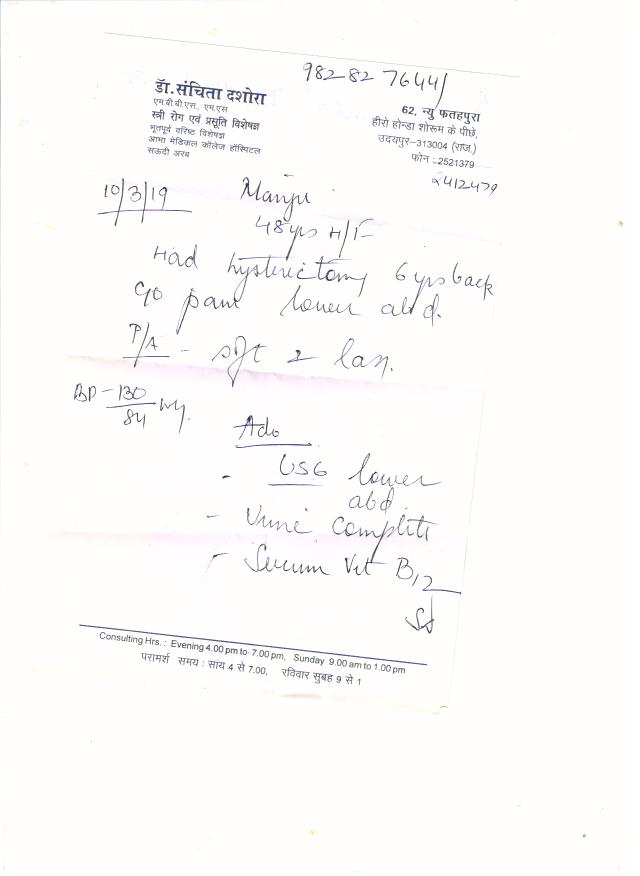 982 82 7644/
डॉ. संचिता दशोरा
एम.बी.बी.एस., एम.एस
स्त्री रोग एवं प्रसूति विशेषज्ञ
भूतपूर्व वरिष्ठ विशेषज्ञ
आभा मेडिकल कॉलेज हॉस्पिटल
सऊदी अरब
62, न्यु फतहपुरा
हीरो होन्डा शोरूम के पीछे,
उदयपुर-313004 (राज.)
फोन : 2521379
2412479
10/3/19 Manju
48 yrs H/F
Had hysterectomy 6 yrs back
c/o pain lower abd.
P/A - soft
BP - 130/84
Adv
- USG lower
abd.
- Urine Complete
- Serum Vit B12
Consulting Hrs. : Evening 4.00 pm to 7.00 pm, Sunday 9.00 am to 1.00 pm
परामर्श समय : सांय 4 से 7.00, रविवार सुबह 9 से 1